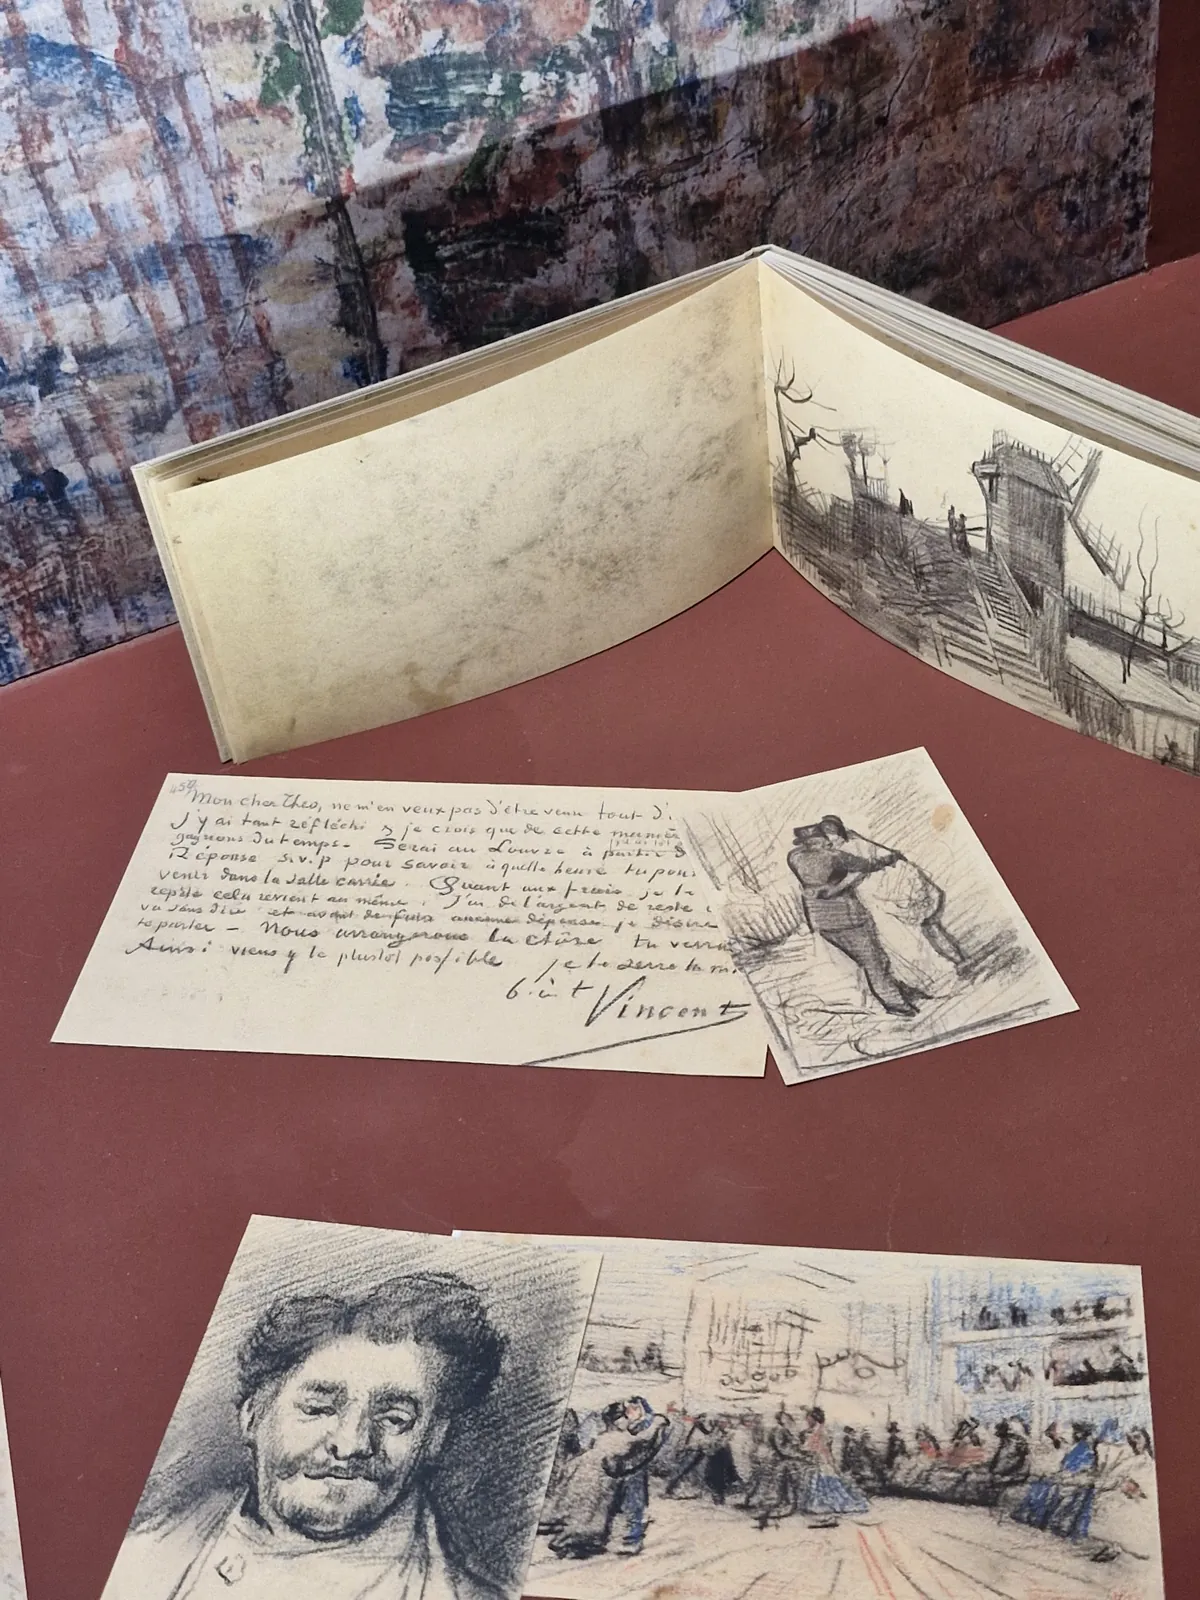 459
Mon cher Theo, ne m'en veux pas d'être venu tout d'
J'y ai tant réfléchi & je crois que de cette manière
gagnons du temps. Serai au Louvre à partir d
Réponse s.v.p pour savoir à quelle heure tu pour
venir dans la Salle carrée. Quant aux frais je te
repète cela revient au même. J'ai de l'argent de reste
va sans dire et avant de faire aucune dépense je désire
te parler - Nous arrangerons la chôse tu verra
Ainsi viens y le plustot possible je te serre la m
b. à t Vincent